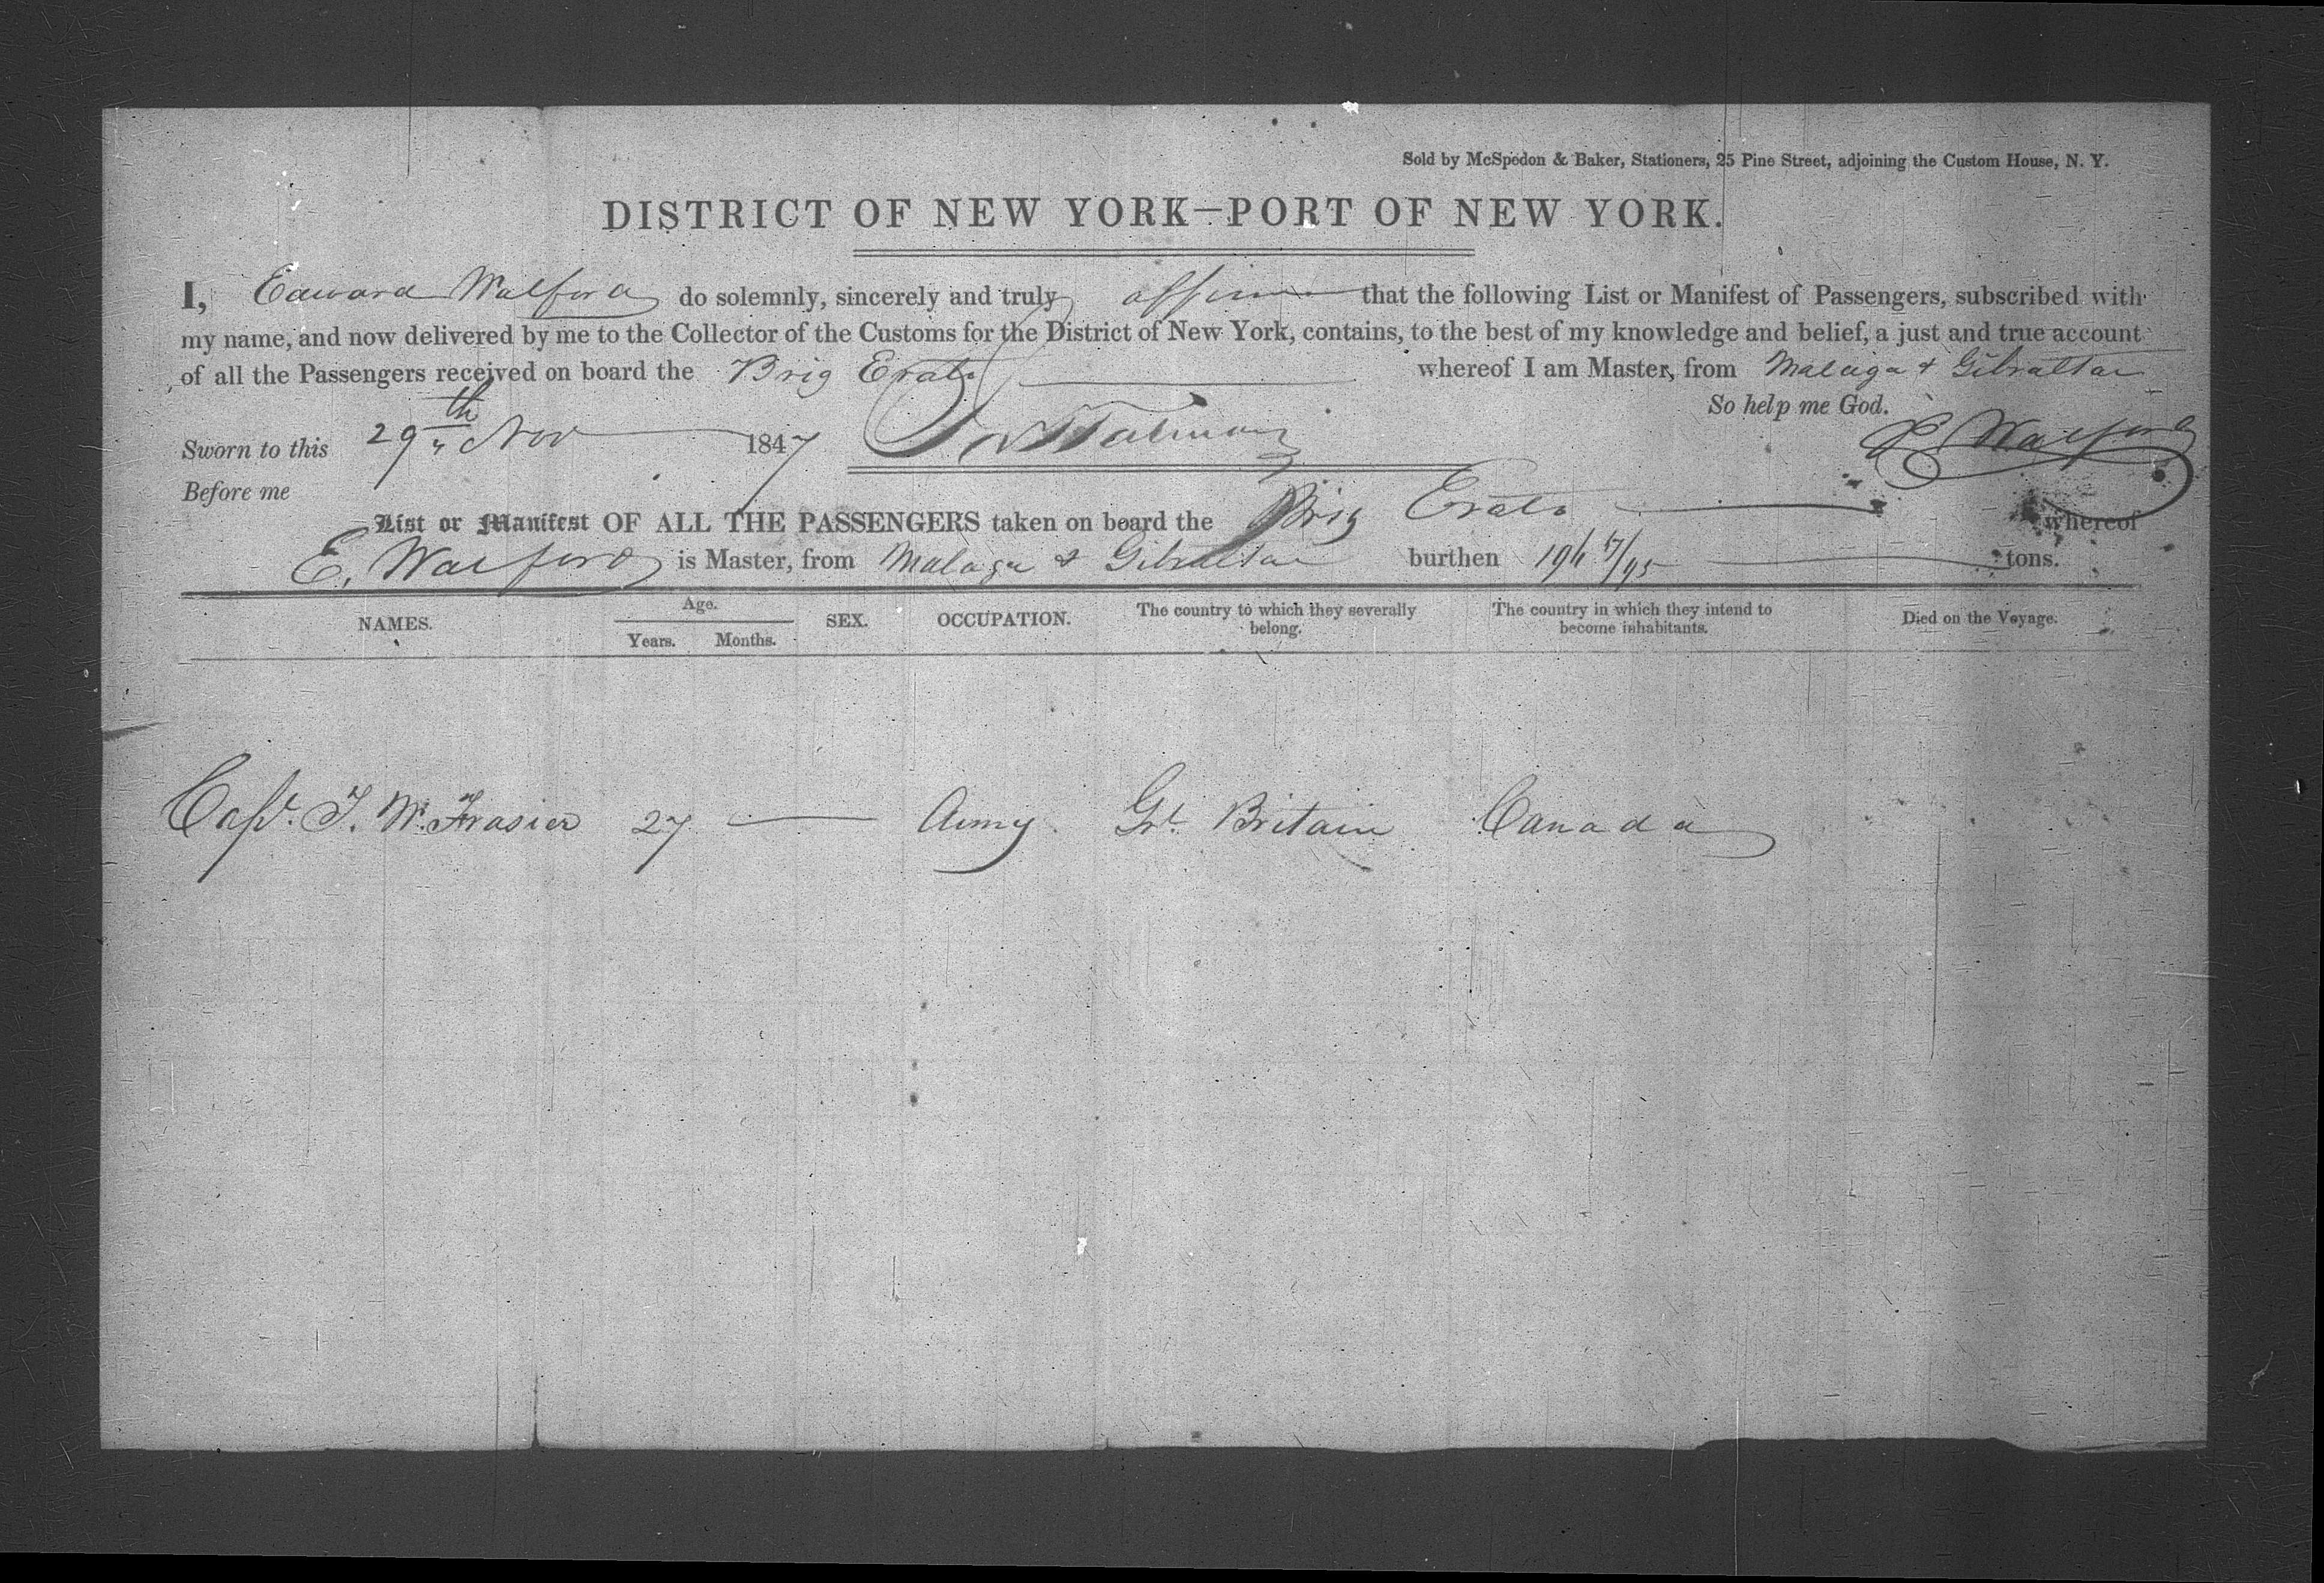 Sold by McSpedon & Baker, Stationers, 25 Pine Street, adjoining the Custom House, N. Y.
DISTRICT OF NEW YORK—PORT OF NEW YORK.
I, Edward Walford do solemnly, sincerely and truly affirm that the following List or Manifest of Passengers, subscribed with
my name, and now delivered by me to the Collector of the Customs for the District of New York, contains, to the best of my knowledge and belief, a just and true account
of all the Passengers received on board the Brig Erato whereof I am Master, from Malaga & Gibraltar
So help me God.
Sworn to this 29th Nov 1847 E Walford
Before me
List or Manifest OF ALL THE PASSENGERS taken on board the Brig Erato whereof
E. Walford is Master, from Malaga & Gibraltar burthen tons.
NAMES. Age. Years. Months. SEX. OCCUPATION. The country to which they severally belong. The country in which they intend to become inhabitants. Died on the Voyage.
Capt. J. W. Frasier 27 — Army Gt. Britain Canada